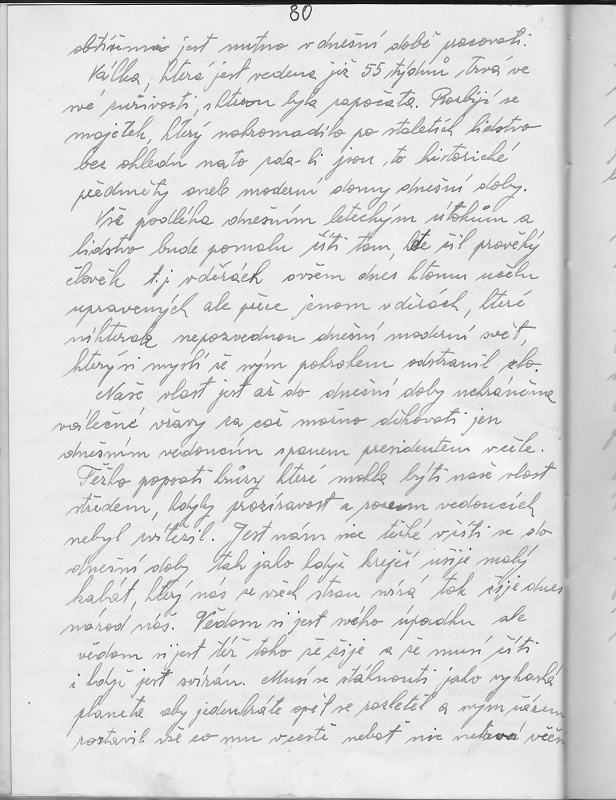 80
obtížemi jest nutno v dnešní době pracovati.
Válka, která jest vedena již 55 týdnů trvá ve
své zuřivosti, s kterou byla započata. Rozbíjí se
majetek, který nahromadilo po staletích lidstvo
bez ohledu na to zda-li jsou to historické
předměty aneb moderní domy dnešní doby.
Vše podléhá dnešním leteckým útokům a
lidstvo bude pomalu žíti tam, kde žil pravěký
člověk t.j. v děrách ovšem dnes ktomu účelu
upravených ale přece jenom v děrách, které
nikterak nepozvednou dnešní moderní svět,
který si myslí že svým pokrokem odstranil zlo.
Naše vlast jest až do dnešní doby uchráněna
válečné vřavy za což možno děkovati jen
dnešním vedoucím s panem presidentem v čele.
Těžko popsati hrůzy které mohla býti naše vlast
středem, kdyby prozíravost a rozum vedoucích
nebyl zvítězil. Jest nám sice těžké vžíti se do
dnešní doby tak jako když krejčí ušije malý
kabát, který nás ze všech stran svírá tak žije dnes
národ náš. Vědom si jest svého úpadku ale
vědom si jest též toho že žije a že musí žíti
i když jest svírán. Musí se stáhnouti jako vyhaslá
planeta aby jedenkráte opět se rozletěl a svým žárem
roztavil vše co mu v cestě neboť nic netrvá věčn